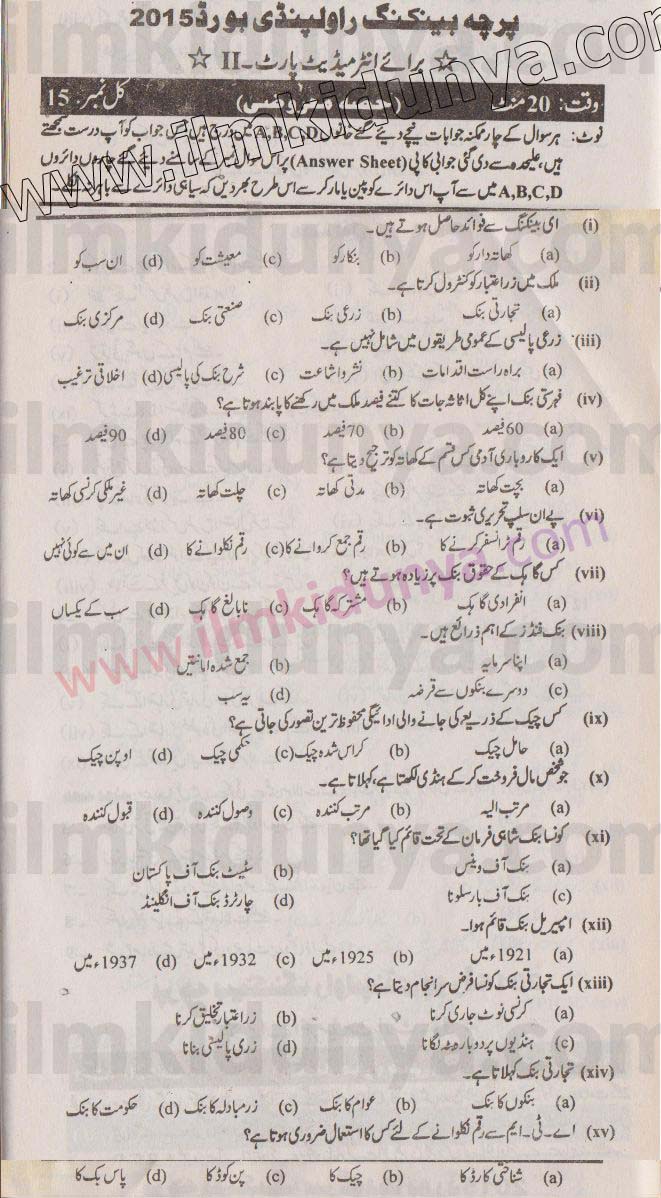 پرچہ بینکنگ راولپنڈی بورڈ 2015
☆ برائے انٹرمیڈیٹ پارٹ ـ II ☆
وقت: 20 منٹ کل نمبر: 15
نوٹ: ہر سوال کے چار ممکنہ جوابات نیچے دیئے گئے A,B,C,D جواب کو آپ درست سمجھتے
ہیں، علیحدہ سے دی گئی جوابی کاپی (Answer Sheet) پر اس سوال کے سامنے دیئے گئے دائروں
A,B,C,D میں سے آپ اس دائرے کو پین یا مارکر سے اس طرح بھر دیں کہ سیاہی دائرے سے باہر
(i) ای بینکنگ سے فوائد حاصل ہوتے ہیں۔
(a) کھاتہ دار کو (b) بنکار کو (c) معیشت کو (d) ان سب کو
(ii) ملک میں زر اعتبار کو کنٹرول کرتا ہے۔
(a) تجارتی بنک (b) زرعی بنک (c) صنعتی بنک (d) مرکزی بنک
(iii) زرعی پالیسی کے عمومی طریقوں میں شامل نہیں ہے۔
(a) براہ راست اقدامات (b) نشر و اشاعت (c) شرح بنک کی پالیسی (d) اخلاقی ترغیب
(iv) فہرستی بنک اپنے کل اثاثہ جات کا کتنے فیصد ملک میں رکھنے کا پابند ہوتا ہے؟
(a) 60 فیصد (b) 70 فیصد (c) 80 فیصد (d) 90 فیصد
(v) ایک کاروباری آدمی کس قسم کے کھاتہ کو ترجیح دیتا ہے؟
(a) بچت کھاتہ (b) مدتی کھاتہ (c) چلت کھاتہ (d) غیر ملکی کرنسی کھاتہ
(vi) پے ان سلپ تحریری ثبوت ہے۔
(a) رقم ٹرانسفر کرنے کا (b) رقم جمع کروانے کا (c) رقم نکلوانے کا (d) ان میں سے کوئی نہیں
(vii) کس گاہک کے حقوق بنک پر زیادہ ہوتے ہیں؟
(a) انفرادی گاہک (b) مشترکہ گاہک (c) نابالغ گاہک (d) سب کے یکساں
(viii) بنک فنڈز کے اہم ذرائع ہیں۔
(a) اپنا سرمایہ (b) جمع شدہ امانتیں
(c) دوسرے بنکوں سے قرضہ (d) یہ سب
(ix) کس چیک کے ذریعے کی جانے والی ادائیگی محفوظ ترین تصور کی جاتی ہے؟
(a) حامل چیک (b) کراس شدہ چیک (c) حکمی چیک (d) اوپن چیک
(x) جو شخص مال فروخت کر کے ہنڈی لکھتا ہے، کہلاتا ہے۔
(a) مرتب الیہ (b) مرتب کنندہ (c) وصول کنندہ (d) قبول کنندہ
(xi) کونسا بنک شاہی فرمان کے تحت قائم کیا گیا تھا؟
(a) بنک آف وینس (b) سٹیٹ بنک آف پاکستان
(c) بنک آف بارسلونا (d) چارٹرڈ بنک آف انگلینڈ
(xii) امپیریل بنک قائم ہوا۔
(a) 1921ء میں (b) 1925ء میں (c) 1932ء میں (d) 1937ء میں
(xiii) ایک تجارتی بنک کونسا فرض سرانجام دیتا ہے؟
(a) کرنسی نوٹ جاری کرنا (b) زر اعتبار تخلیق کرنا
(c) ہنڈیوں پر دوبارہ بٹہ لگانا (d) زری پالیسی بنانا
(xiv) تجارتی بنک کہلاتا ہے۔
(a) بنکوں کا بنک (b) عوام کا بنک (c) زرمبادلہ کا بنک (d) حکومت کا بنک
(xv) اے۔ٹی۔ایم سے رقم نکلوانے کے لئے کس کا استعمال ضروری ہوتا ہے؟
(a) شناختی کارڈ کا (b) چیک کا (c) پن کوڈ کا (d) پاس بک کا
www.ilmkidunya.com
www.ilmkidunya.com